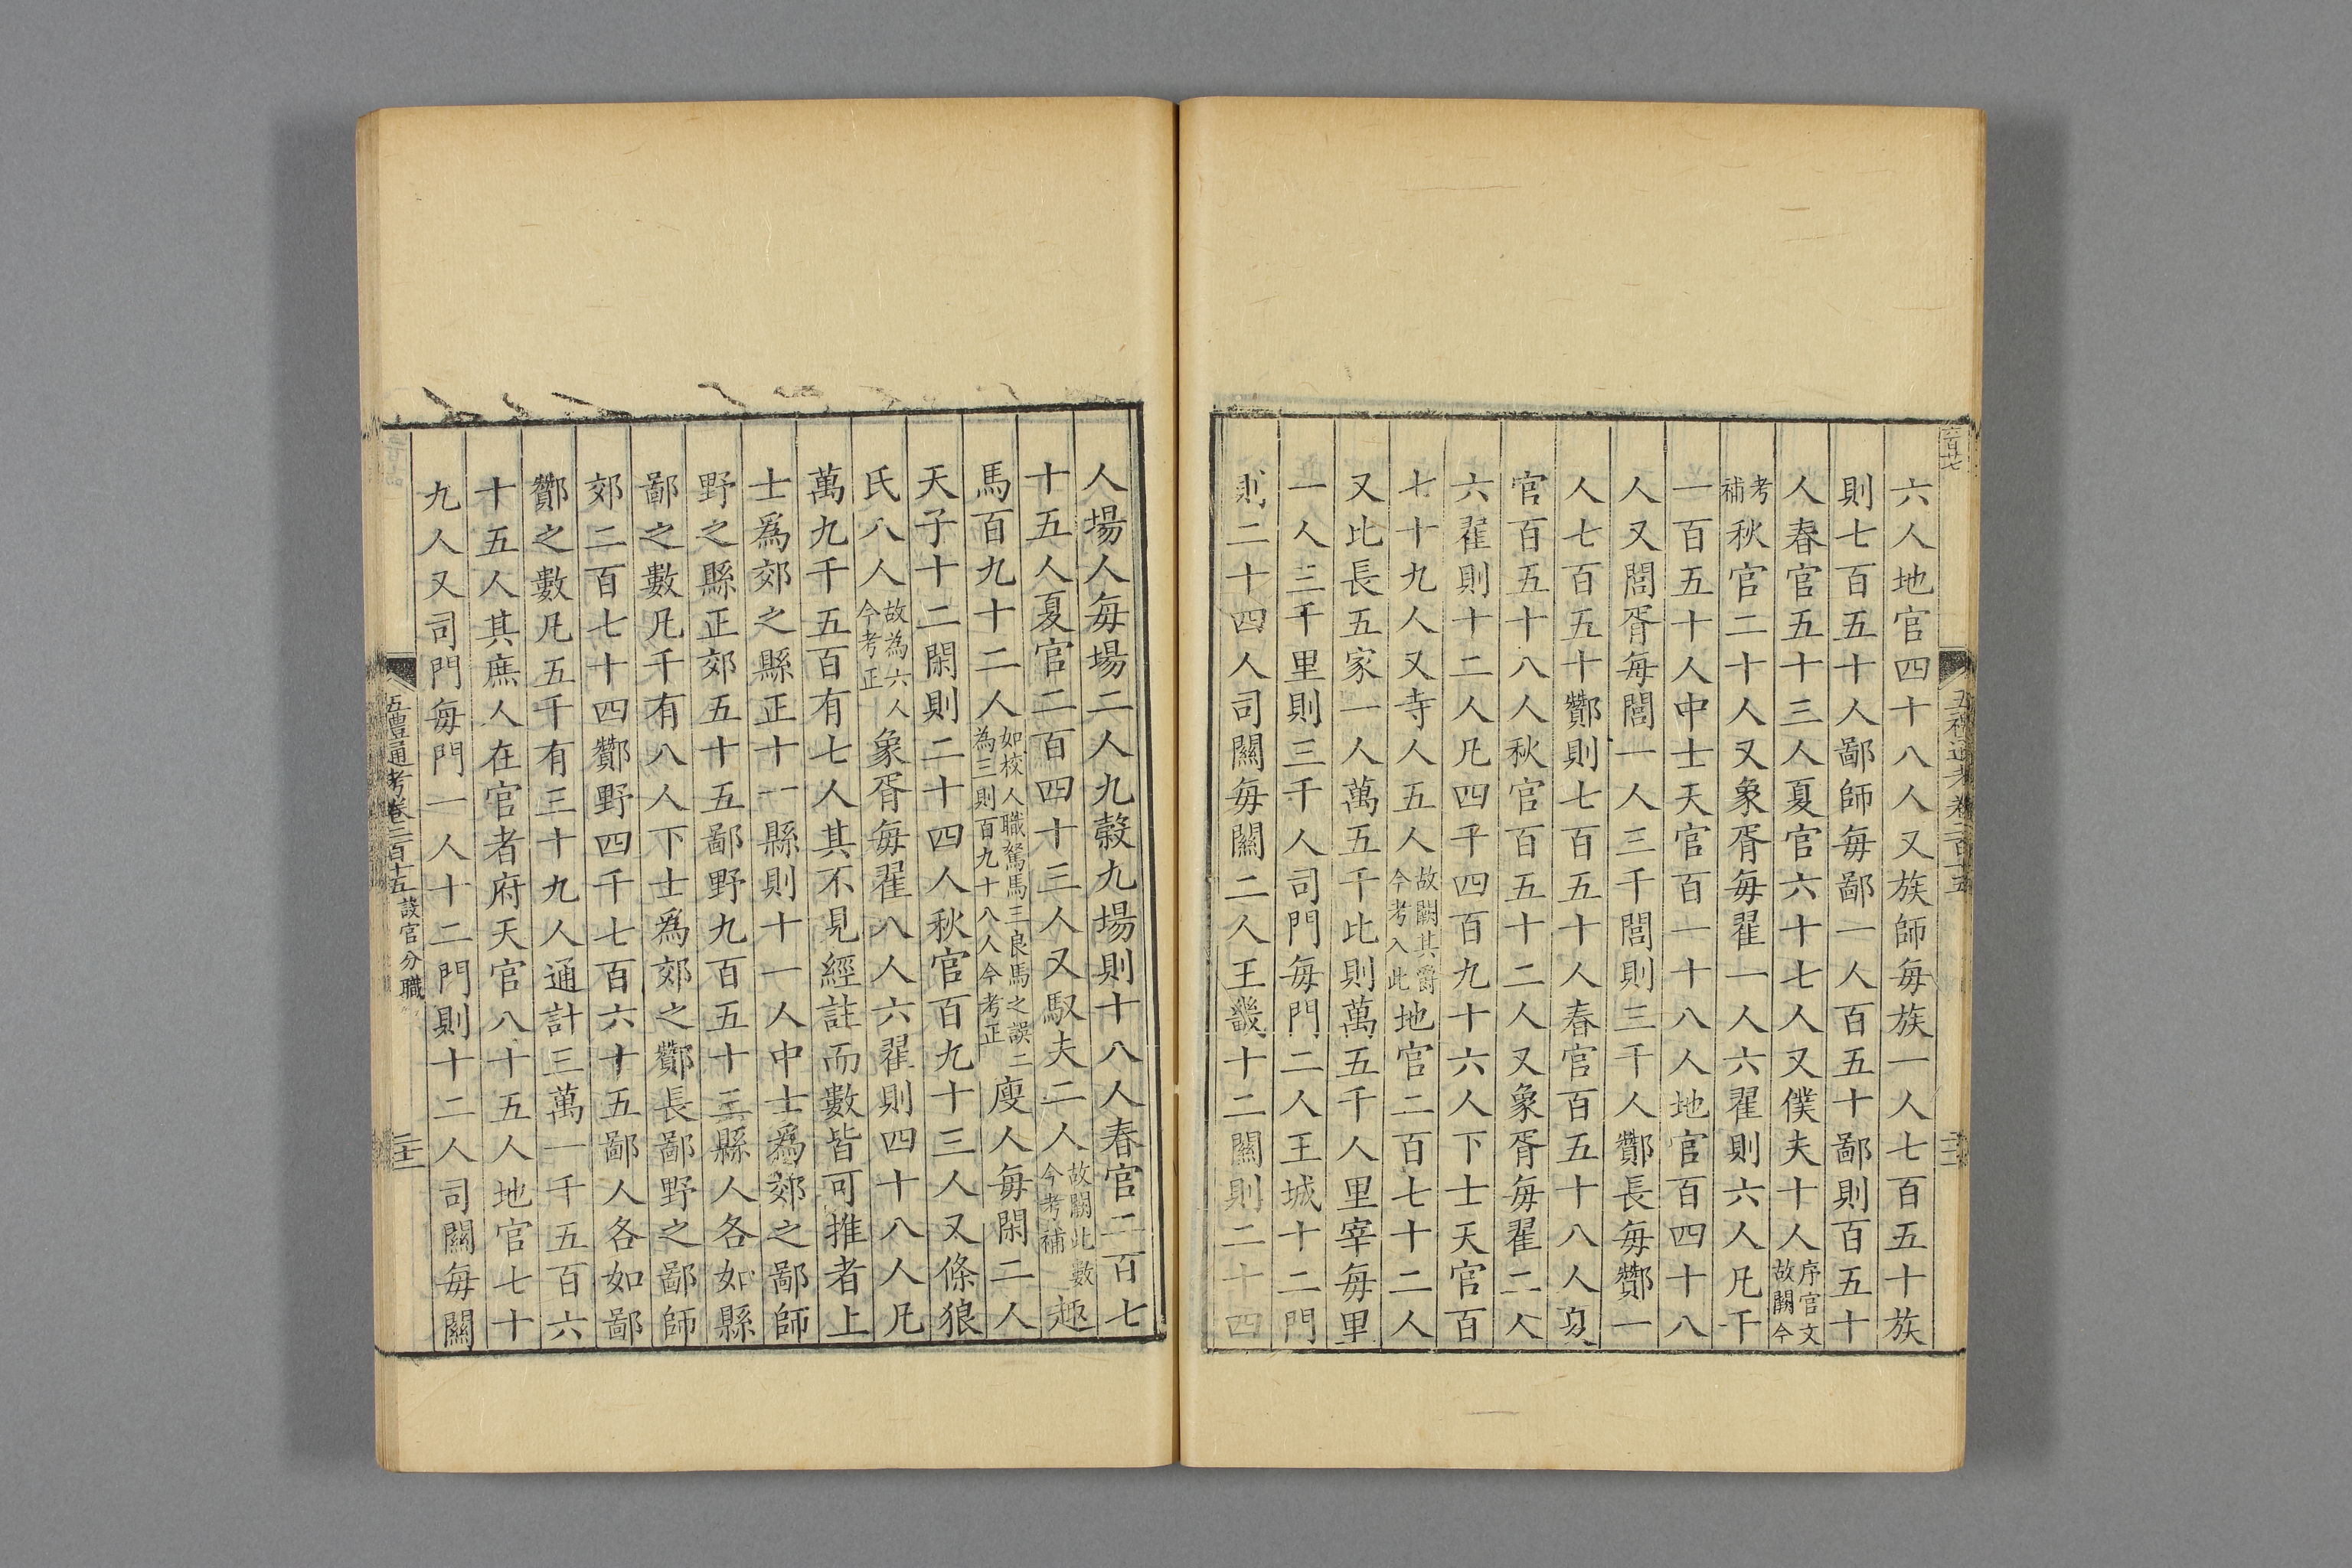 六人地官四十八人又族師每族一人七百五十族
則七百五十人鄙師每鄙一人百五十鄙則百五十
人春官五十三人夏官六十七人又僕夫十人序官文故闕今
考補秋官二十人又象胥每翟一人六翟則六人凡千
一百五十人中士天官百一十八人地官百四十八
人又閭胥每閭一人三千閭則三千人酇長每酇一
人七百五十酇則七百五十人春官百五十八人夏
官百五十八人秋官百五十二人又象胥每翟二人
六翟則十二人凡四千四百九十六人下士天官百
七十九人又寺人五人故闕其爵今考入此地官二百七十二人
又比長五家一人萬五千比則萬五千人里宰每里
一人三千里則三千人司門每門二人王城十二門
則二十四人司關每關二人王畿十二關則二十四
人場人每場二人九穀九場則十八人春官二百七
十五人夏官二百四十三人又馭夫二人故闕此數今考補趣
馬百九十二人如校人職駑馬三良馬之誤二為三則百九十八人今考正廋人每閑二人
天子十二閑則二十四人秋官百九十三人又條狼
氏八人故為六人今考正象胥每翟八人六翟則四十八人凡
萬九千五百有七人其不見經註而數皆可推者上
士爲郊之縣正十一縣則十一人中士爲郊之鄙師
野之縣正郊五十五鄙野九百五十三縣人各如縣
鄙之數凡千有八人下士爲郊之酇長鄙野之鄙師
郊二百七十四酇野四千七百六十五鄙人各如鄙
酇之數凡五千有三十九人通計三萬一千五百六
十五人其庶人在官者府天官八十五人地官七十
九人又司門每門一人十二門則十二人司關每關
五禮通考卷二百十五 設官分職 二十二